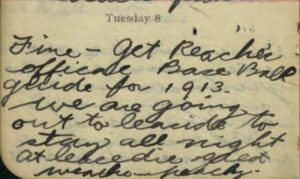 Tuesday 8
Fine - Get Reache's
official Base Ball
guide for 1913.
we are going
out to leaside to
stay all night
at